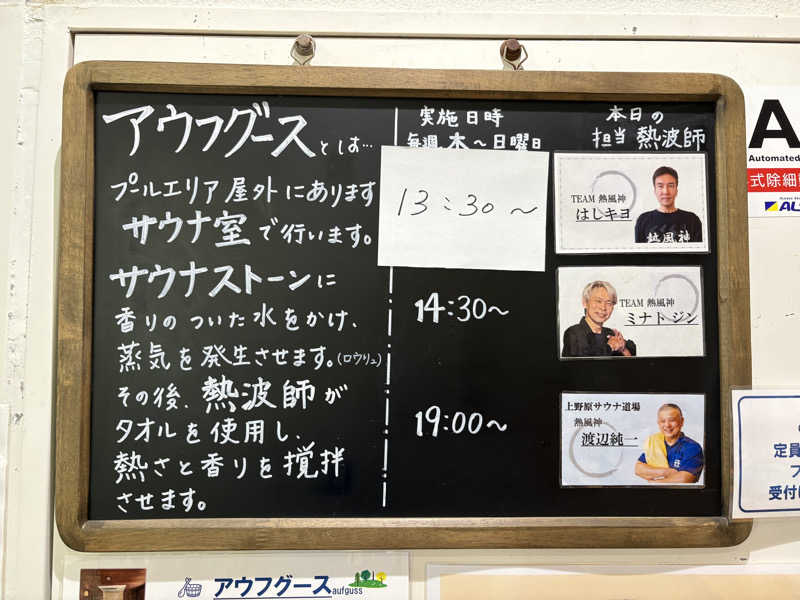 アウフグースとは…
プールエリア屋外にあります
サウナ室で行います。
サウナストーンに
香りのついた水をかけ、
蒸気を発生させます。(ロウリュ)
その後、熱波師が
タオルを使用し、
熱さと香りを撹拌
させます。
実施日時
毎週 木～日曜日
13:30～
14:30～
19:00～
本日の
担当 熱波師
TEAM 熱風神
はしキヨ
熱風神
TEAM 熱風神
ミナト ジン
上野原サウナ道場
熱風神
渡辺純一
A
Automated
式除細
AL
定員
受付
アウフグース aufguss